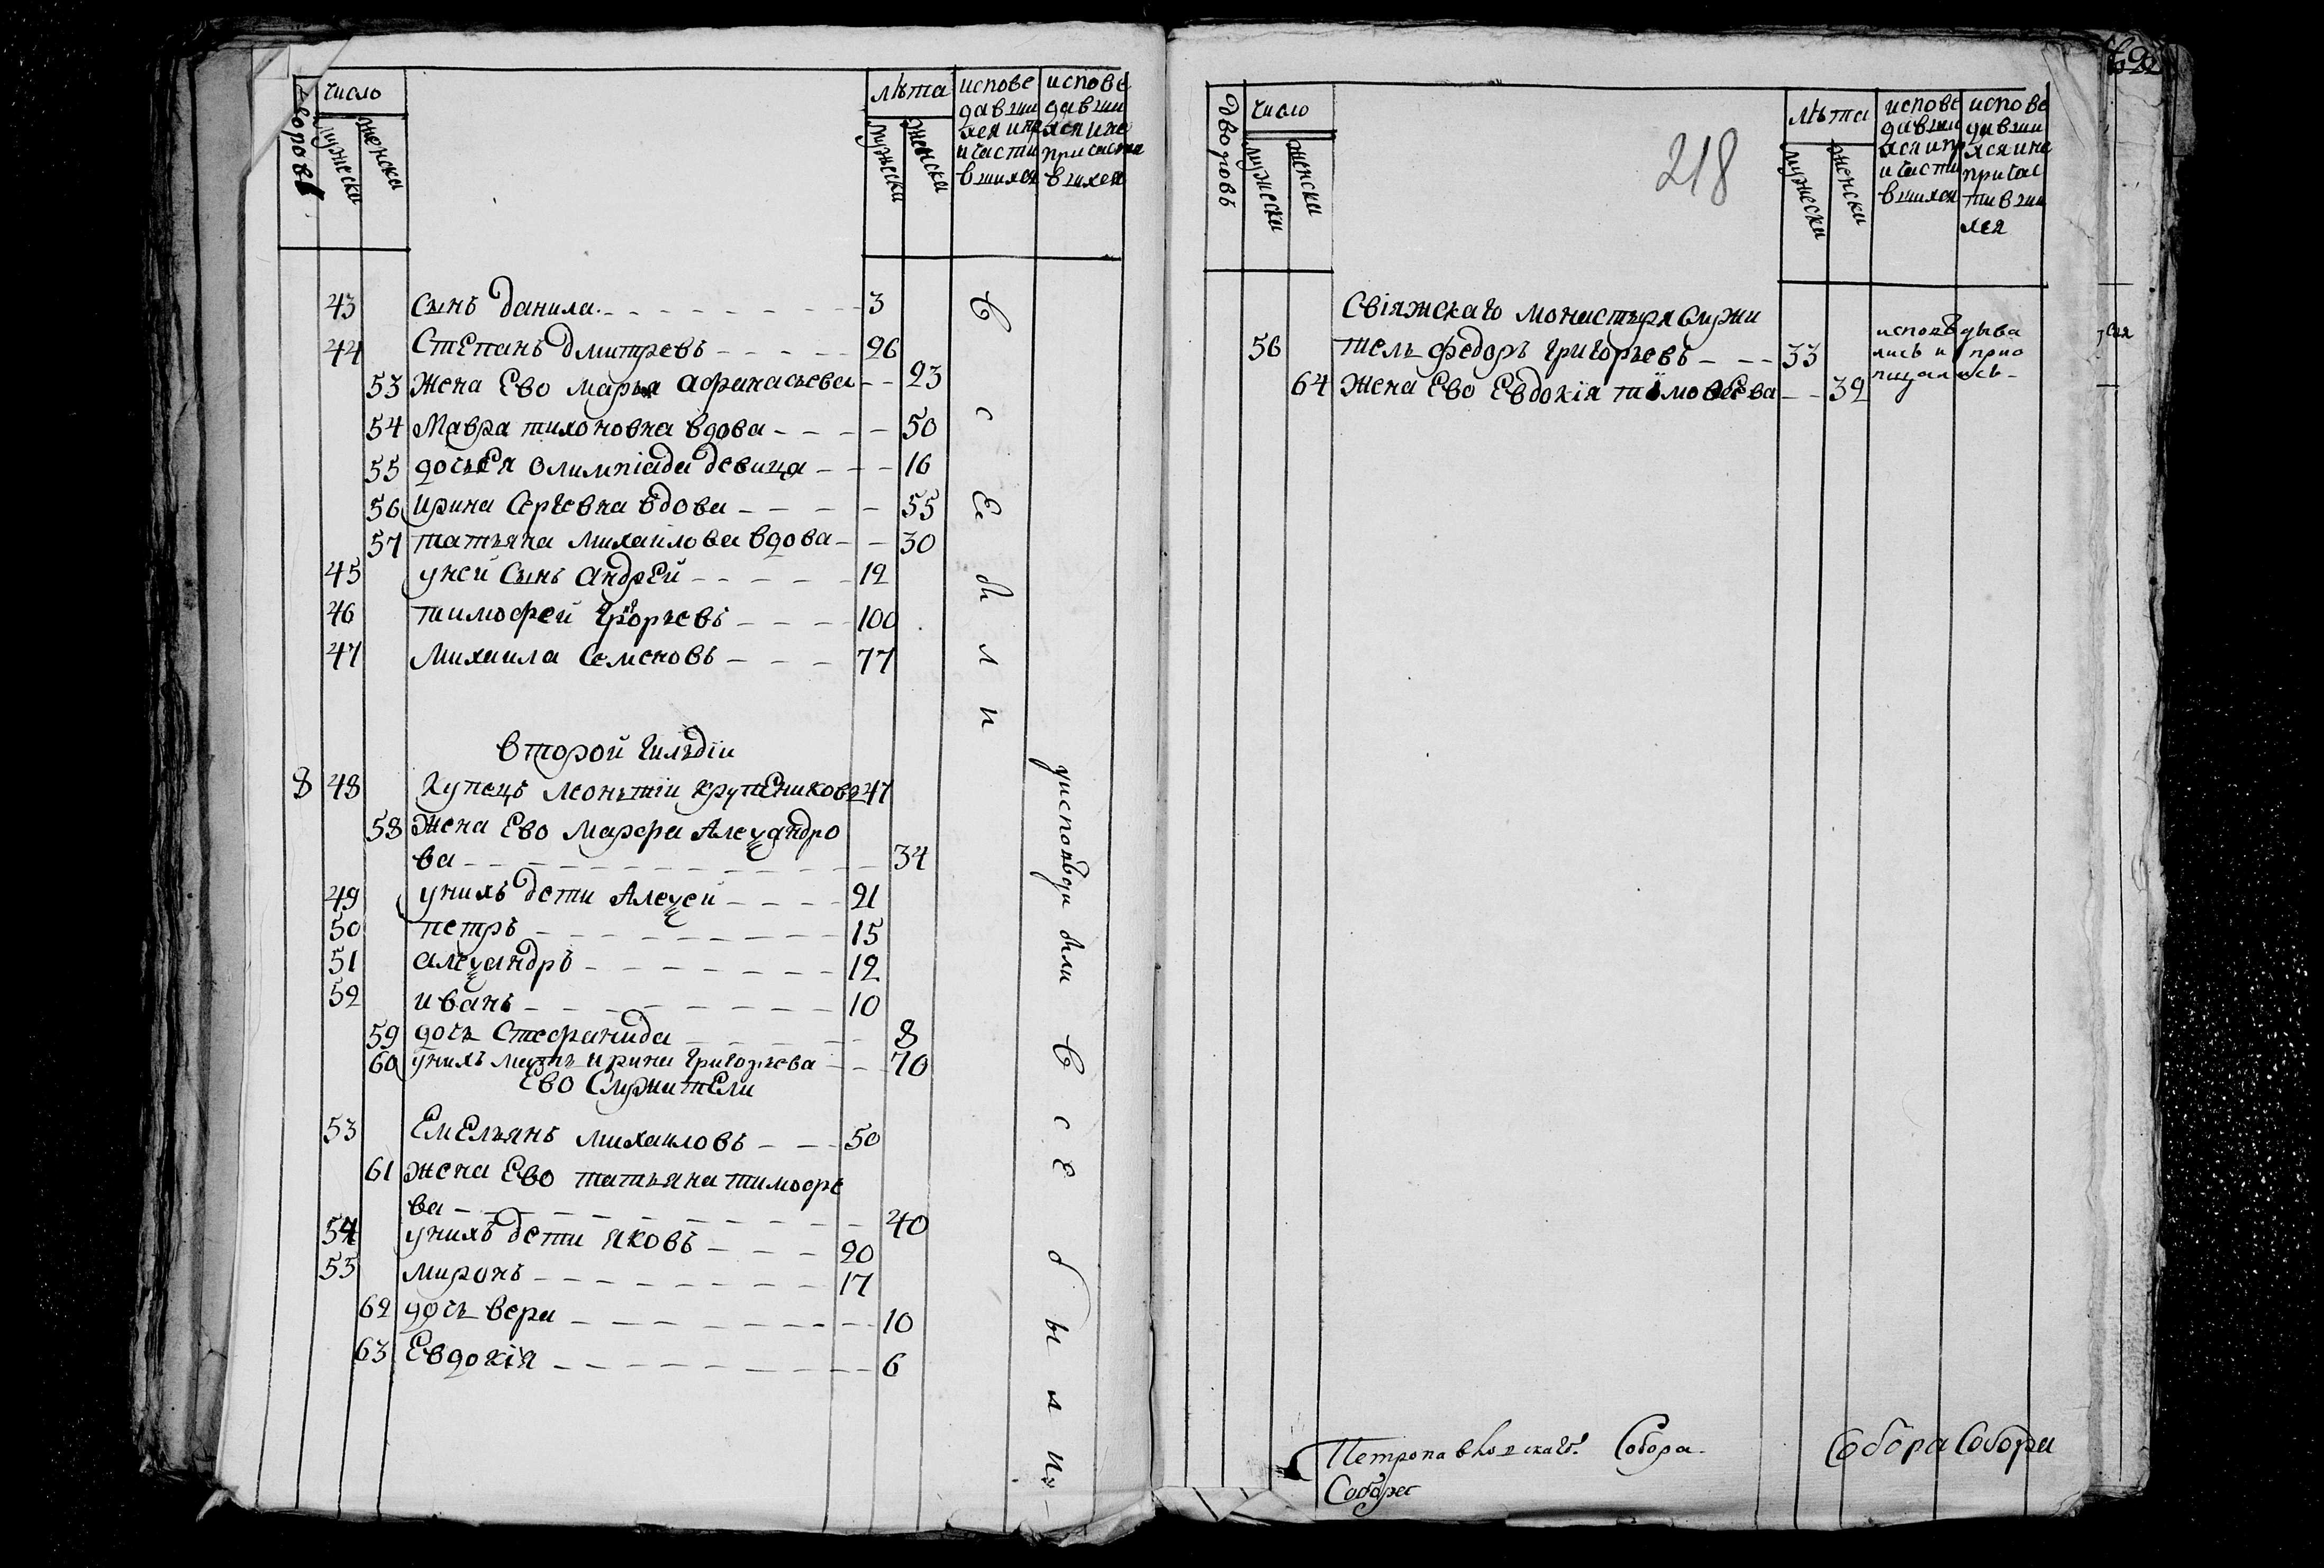 дворовъ
число
мужеска
женска
лѣта
мужеска
женска
испове
давши
хся и пр
ичасти
вшихся
испове
давши
хся и не
причасти
вшихся
43 Сынъ данила 3
44 Степанъ дмитревъ 26
53 Жена Ево марья афанасьева 23
54 Мавра тихоновна вдова 50
55 дочь Ея олимпіада девица 16
56 ирина Сергевна вдова 55
57 татьяна михаилова вдова 30
45 у ней Сынъ андрей 12
46 тимофеи григорьевъ 100
47 михаила Семеновъ 77
в с Е б ы л и
второй гильдіи
8 48 Купецъ леонътіи крупениковъ 47
58 Жена Ево марфа Алеѯандро
ва 34
49 у нихъ дети Алеѯеи 21
50 петръ 15
51 алеѯандръ 12
52 иванъ 10
59 дочь Стефанида 8
60 у нихъ мать ирина григорьева 70
Ево Служители
53 ЕмЕльянъ михаиловъ 50
61 жена Ево татьяна тимофе
ва 40
54 у нихъ дети яковъ 20
55 миронъ 17
62 дочь вера 10
63 Евдокія 6
у исповеди были в с Е б ы л и
дворовъ
число
мужеска
женска
218
лѣта
мужеска
женска
испове
давши
хся и пр
ичасти
вшихся
испове
давши
хся и не
причас
тивши
хся
Свіяжскаго монастыря Служи
56 тель федоръ григорьевъ 33
64 жена Ево Евдокія тимофЕева 32
исповѣдыва
лись и прио
пщались
Петропавловскаго Собора
Собора
Собора Собора